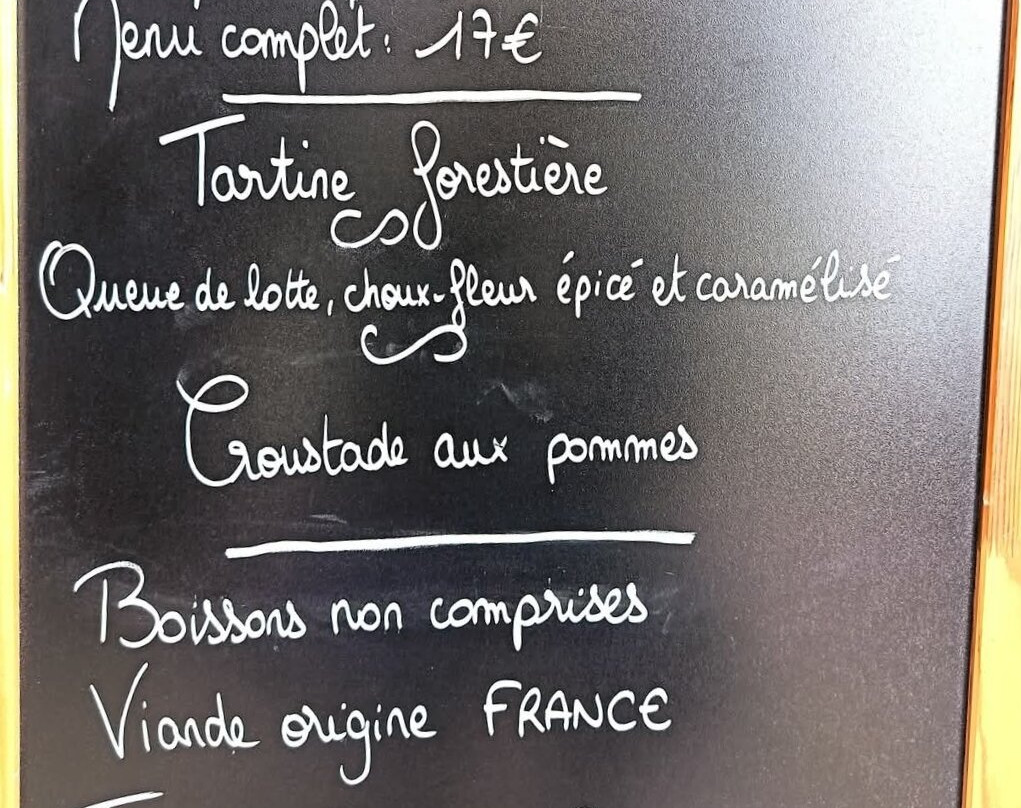 Menu complet : 17€
Tartine forestière
Queue de lotte, choux-fleur épicé et caramélisé
Croustade aux pommes
Boissons non comprises
Viande origine FRANCE